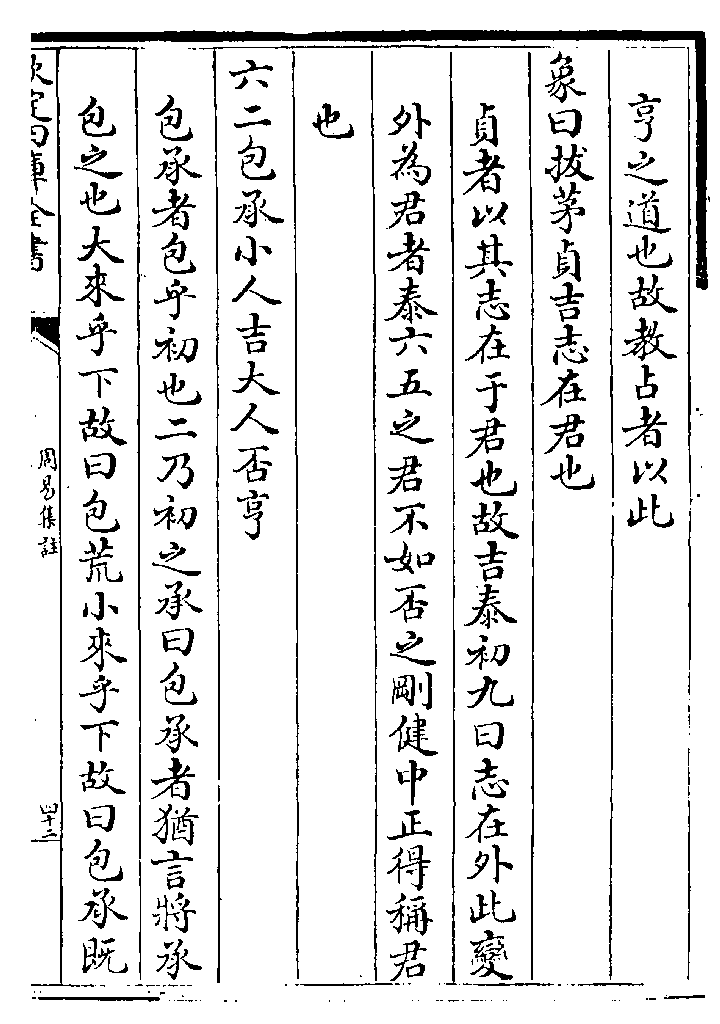 亨之道也故教占者以此
象曰拔茅貞吉志在君也
貞者以其志在于君也故吉泰初九曰志在外此變
外為君者泰六五之君不如否之剛健中正得稱君
也
六二包承小人吉大人否亨
包承者包乎初也二乃初之承曰包承者猶言將承
包之也大來乎下故曰包荒小來乎下故曰包承既
欽定四庫全書
周易集註
四十三